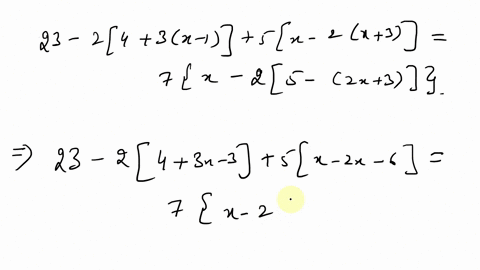 23 - 2[4 + 3(x-1)] + 5[x - 2(x+3)] =
7{x - 2[5 - (2x+3)]}.
⇒ 23 - 2[4 + 3x - 3] + 5[x - 2x - 6] =
7{x - 2